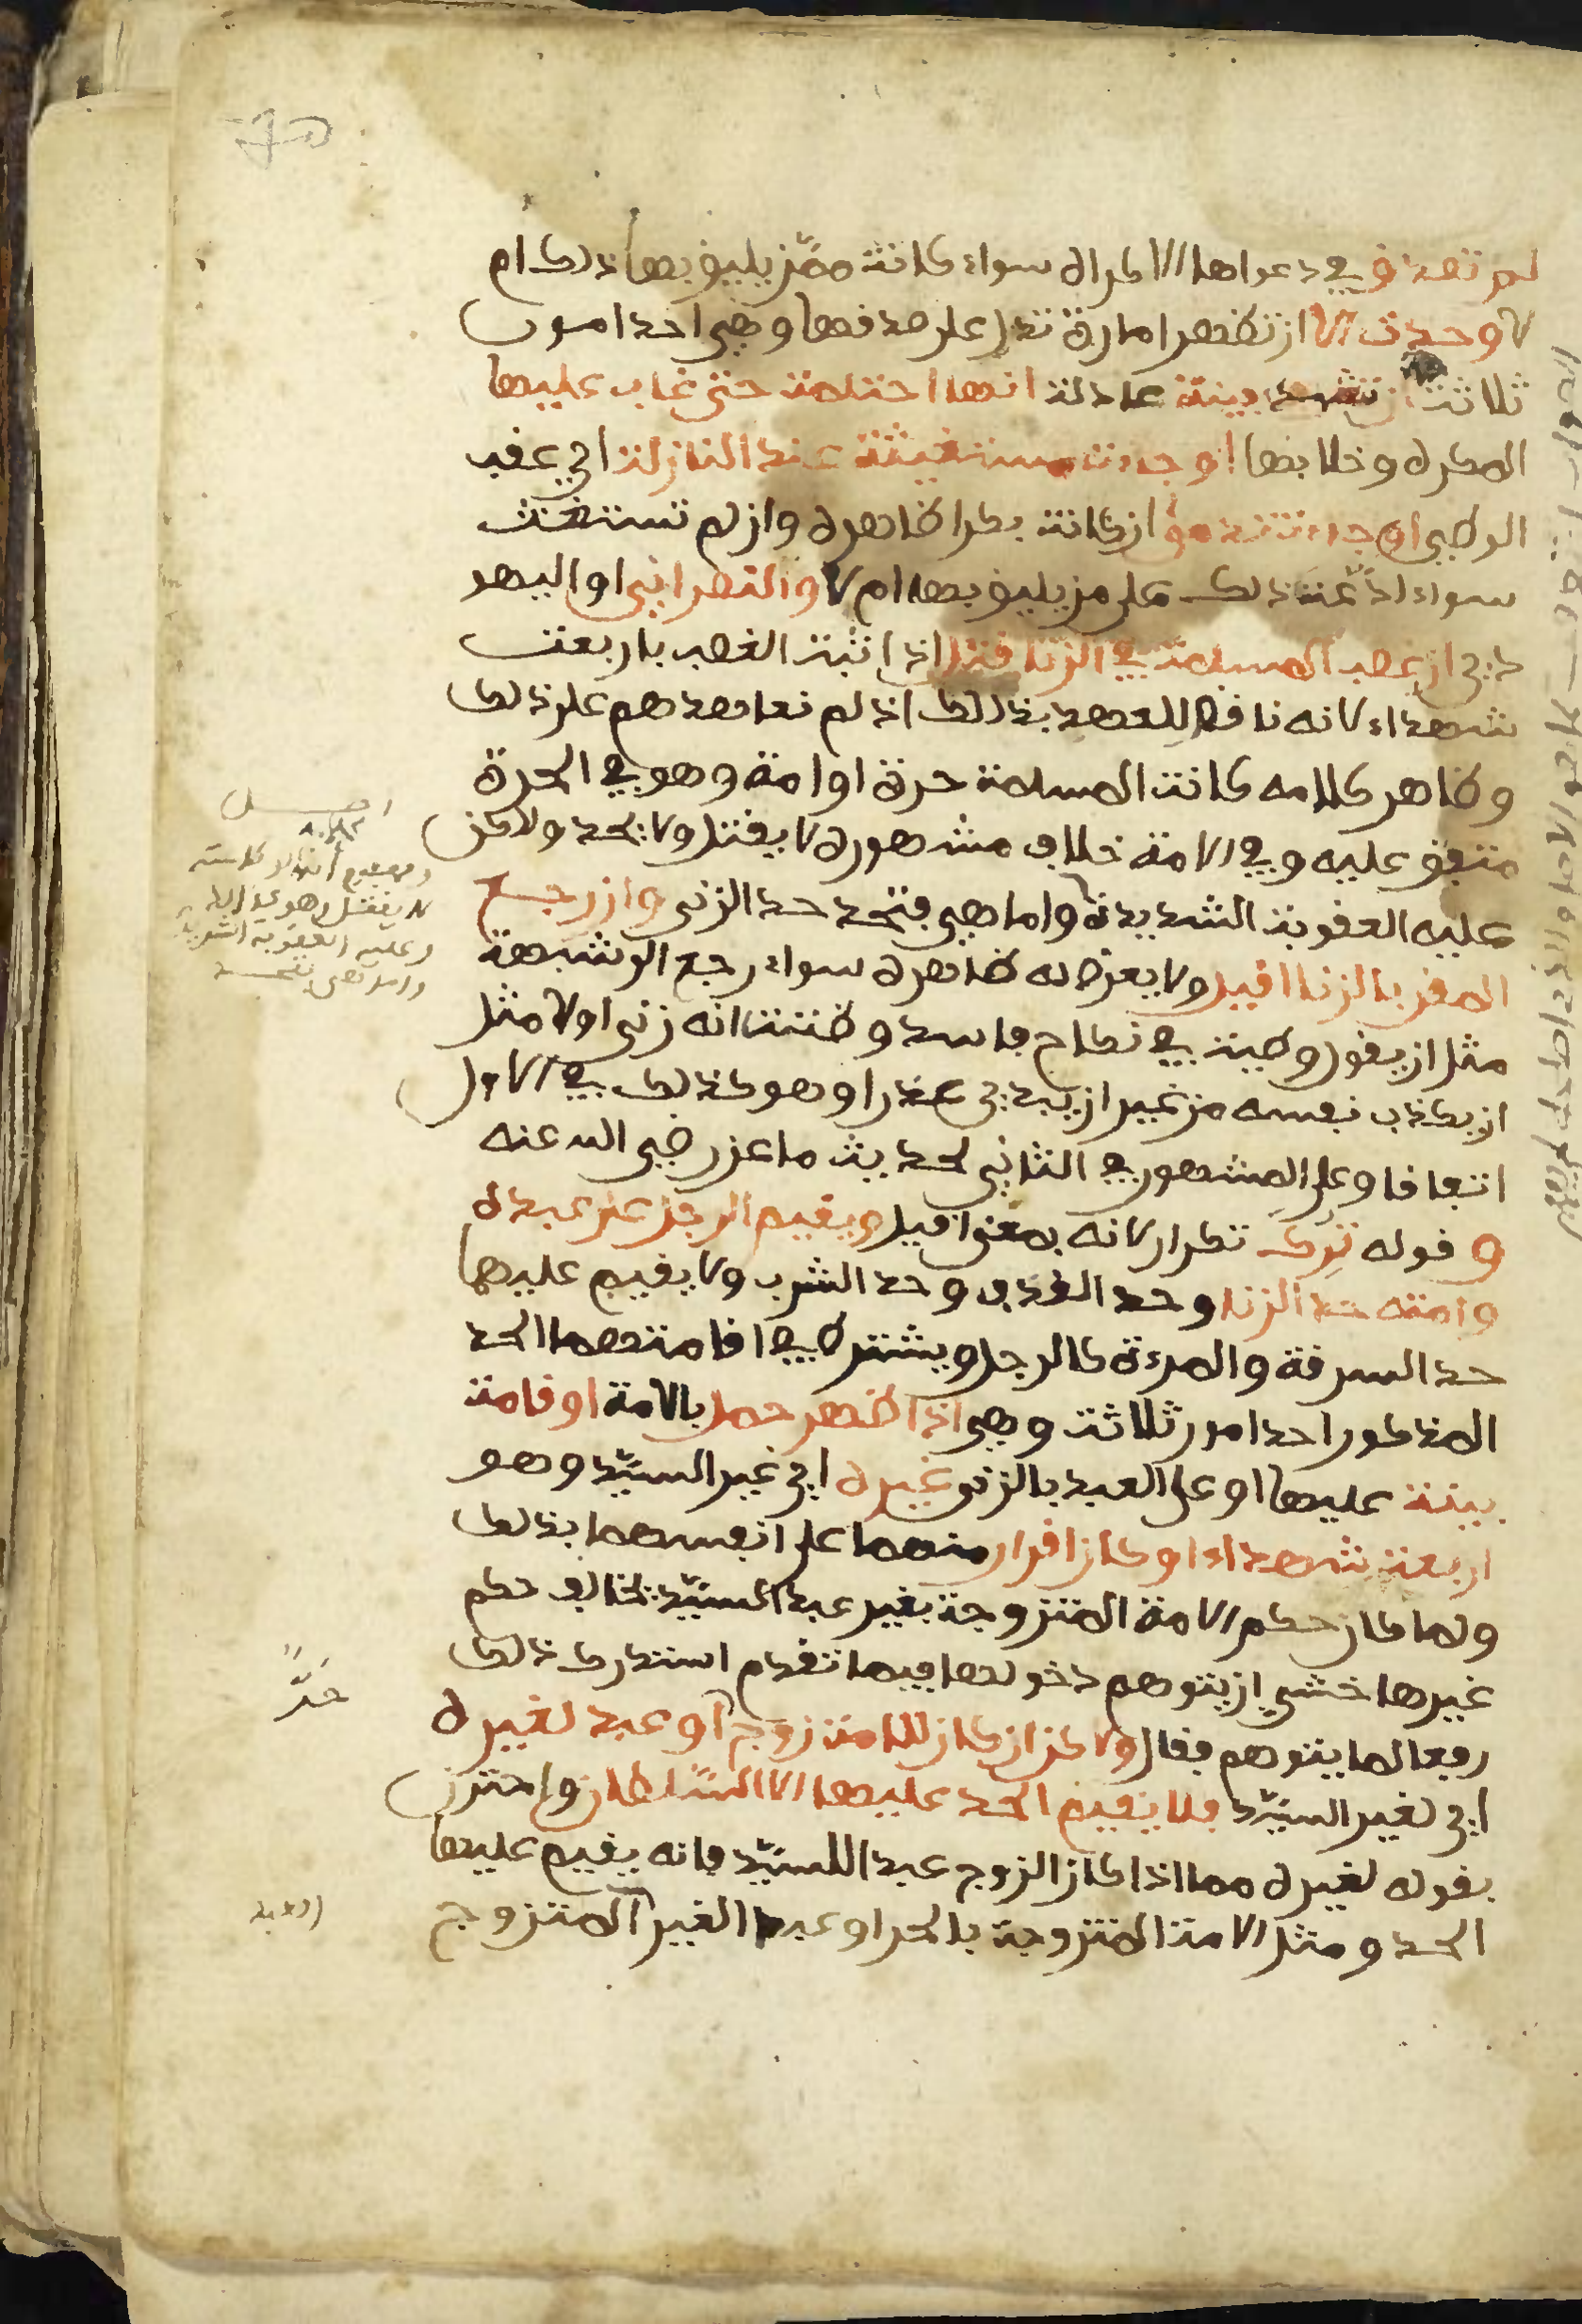 لم تصدق في دعواها الاكراه سواء كانت ممن يليق بها ذلك ام
لا وحدت الا ان تظهر امارة تدل على صدقها وهي احد امور
ثلاثة ان تشهد بينة عادلة انها احتملت حتى غاب عليها
المكره وخلا بها او جاءت مستغيثة عند النازلة اي عقب
الوطي او جاءت تدمى ان كانت بكرا ظاهره وان لم تستغث
سواء ادعت ذلك على من يليق بها ام لا والنصراني او اليهو
دي ان غصب المسلمة في الزنا قتل اذا ثبت الغصب باربعة
شهداء لانه ناقض للعهد بذلك اذ لم نعاهدهم على ذلك
وظاهر كلامه كانت المسلمة حرة او امة وهو في الحرة
متفق عليه وفي الامة خلاف مشهوره لا يقتل ولا يحد ولاكن
عليه العقوبة الشديدة واما هي فتحد حد الزنى وان رجع
المقر بالزنا اقيل ولا يعرض له ظاهره سواء رجع الى شبهة
مثل ان يقول وطيت في نكاح فاسد وظننت انه زنى اولا مثل
ان يكذب نفسه من غير ان يبدي عذرا وهو كذلك في الاول
اتفاقا وعلى المشهور في الثاني لحديث ماعز رضي الله عنه
و قوله ترك تكرار لانه بمعنى اقيل ويقيم الرجل على عبده
وامته حد الزنا وحد القذف وحد الشرب ولا يقيم عليهما
حد السرقة والمرءة كالرجل ويشترط في اقامتهما الحد
المذكور احد امور ثلاثة وهي اذا ظهر حمل بالامة او قامت
بينة عليها او على العبد بالزنى غيره اي غير السيد وهو
اربعة شهداء او كان اقرار منهما على انفسهما بذلك
ولما كان حكم الامة المتزوجة بغير عبد السيد يخالف حكم
غيرها خشي ان يتوهم دخولها فيما تقدم استدرك ذلك
رفعا لما يتوهم فقال ولاكن ان كان للامة زوج او عبد لغيره
اي لغير السيد فلا يقيم الحد عليها الا السلطان واحترز
بقوله لغيره مما اذا كان الزوج عبد اللسيد فانه يقيم عليها
الحد ومثل الامة المتزوجة بالحر او عبد الغير المتزوج
لا يقتل وهو
وعليه العقوبة الشديدة
حرا